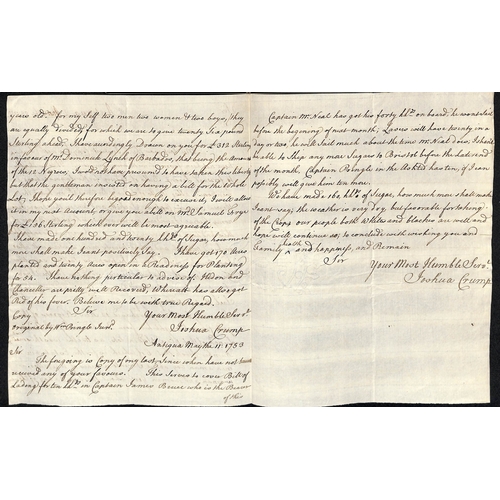 years old. for my Self two men two women & two boys, they
are equally divided for which we are to give twenty Six pound
Sterling ahead. I have accordingly Drawn on you for £312 Sterlin
in favour of Mr. Dominick Lynch of Barbados, that being the Amount
of the 12 Negroes, I would not have presumed to have taken this liberty
but that the gentleman insisted on having a bill for the whole
Lot; I hope you'l therefore be good enough to excuse it, I will allow
it in my Acct. Account or give you a bill on Mr. Samuel Troye
for £156 Sterling which ever will be most agreeable.
I have made one hundred and twenty hhds of Sugar, how much
more shall make I cant positively Say. I have got 170 Acres
planted and twenty Acres open in a Readiness for Planting
for 54. I have nothing particular to advise of Hedon and
Chancellor are pretty well Recover'd, Whereatt has also got
Rid of his fever. Believe me to be with true Regard.
Sir
Copy Your Most Humble Servt.
Original by Wm. Pringle Junr. Joshua Crump
Antigua May the 11: 1753
Sir
The foregoing is Copy of my last Since when have not
received any of your favours. This Serves to cover Bill of
Lading for ten hhds in Captain James Bruce who is the Bearer
of this
Captain McNeal has got his forty hhds on board: he wont Sail
before the begening of next month; Lavers will have twenty in a
day or two, he will Sail much about the time McNeal does; I shall
nable to Ship any more Sugars to Bristol before the latter end
of the month. Captain Pringle in the Ashted has ten, if I can
possibly will give him ten more.
We have made 160 hhds of Sugar, how much more shall make
I cant say; the weather is very dry, but favorable for taking
of the Crops our people both Whites and blacks are well and
hope will continue so, to conclude with wishing you and
Family health and happyness, and Remain
Sir
Your Most Humble Servt.
Joshua Crump